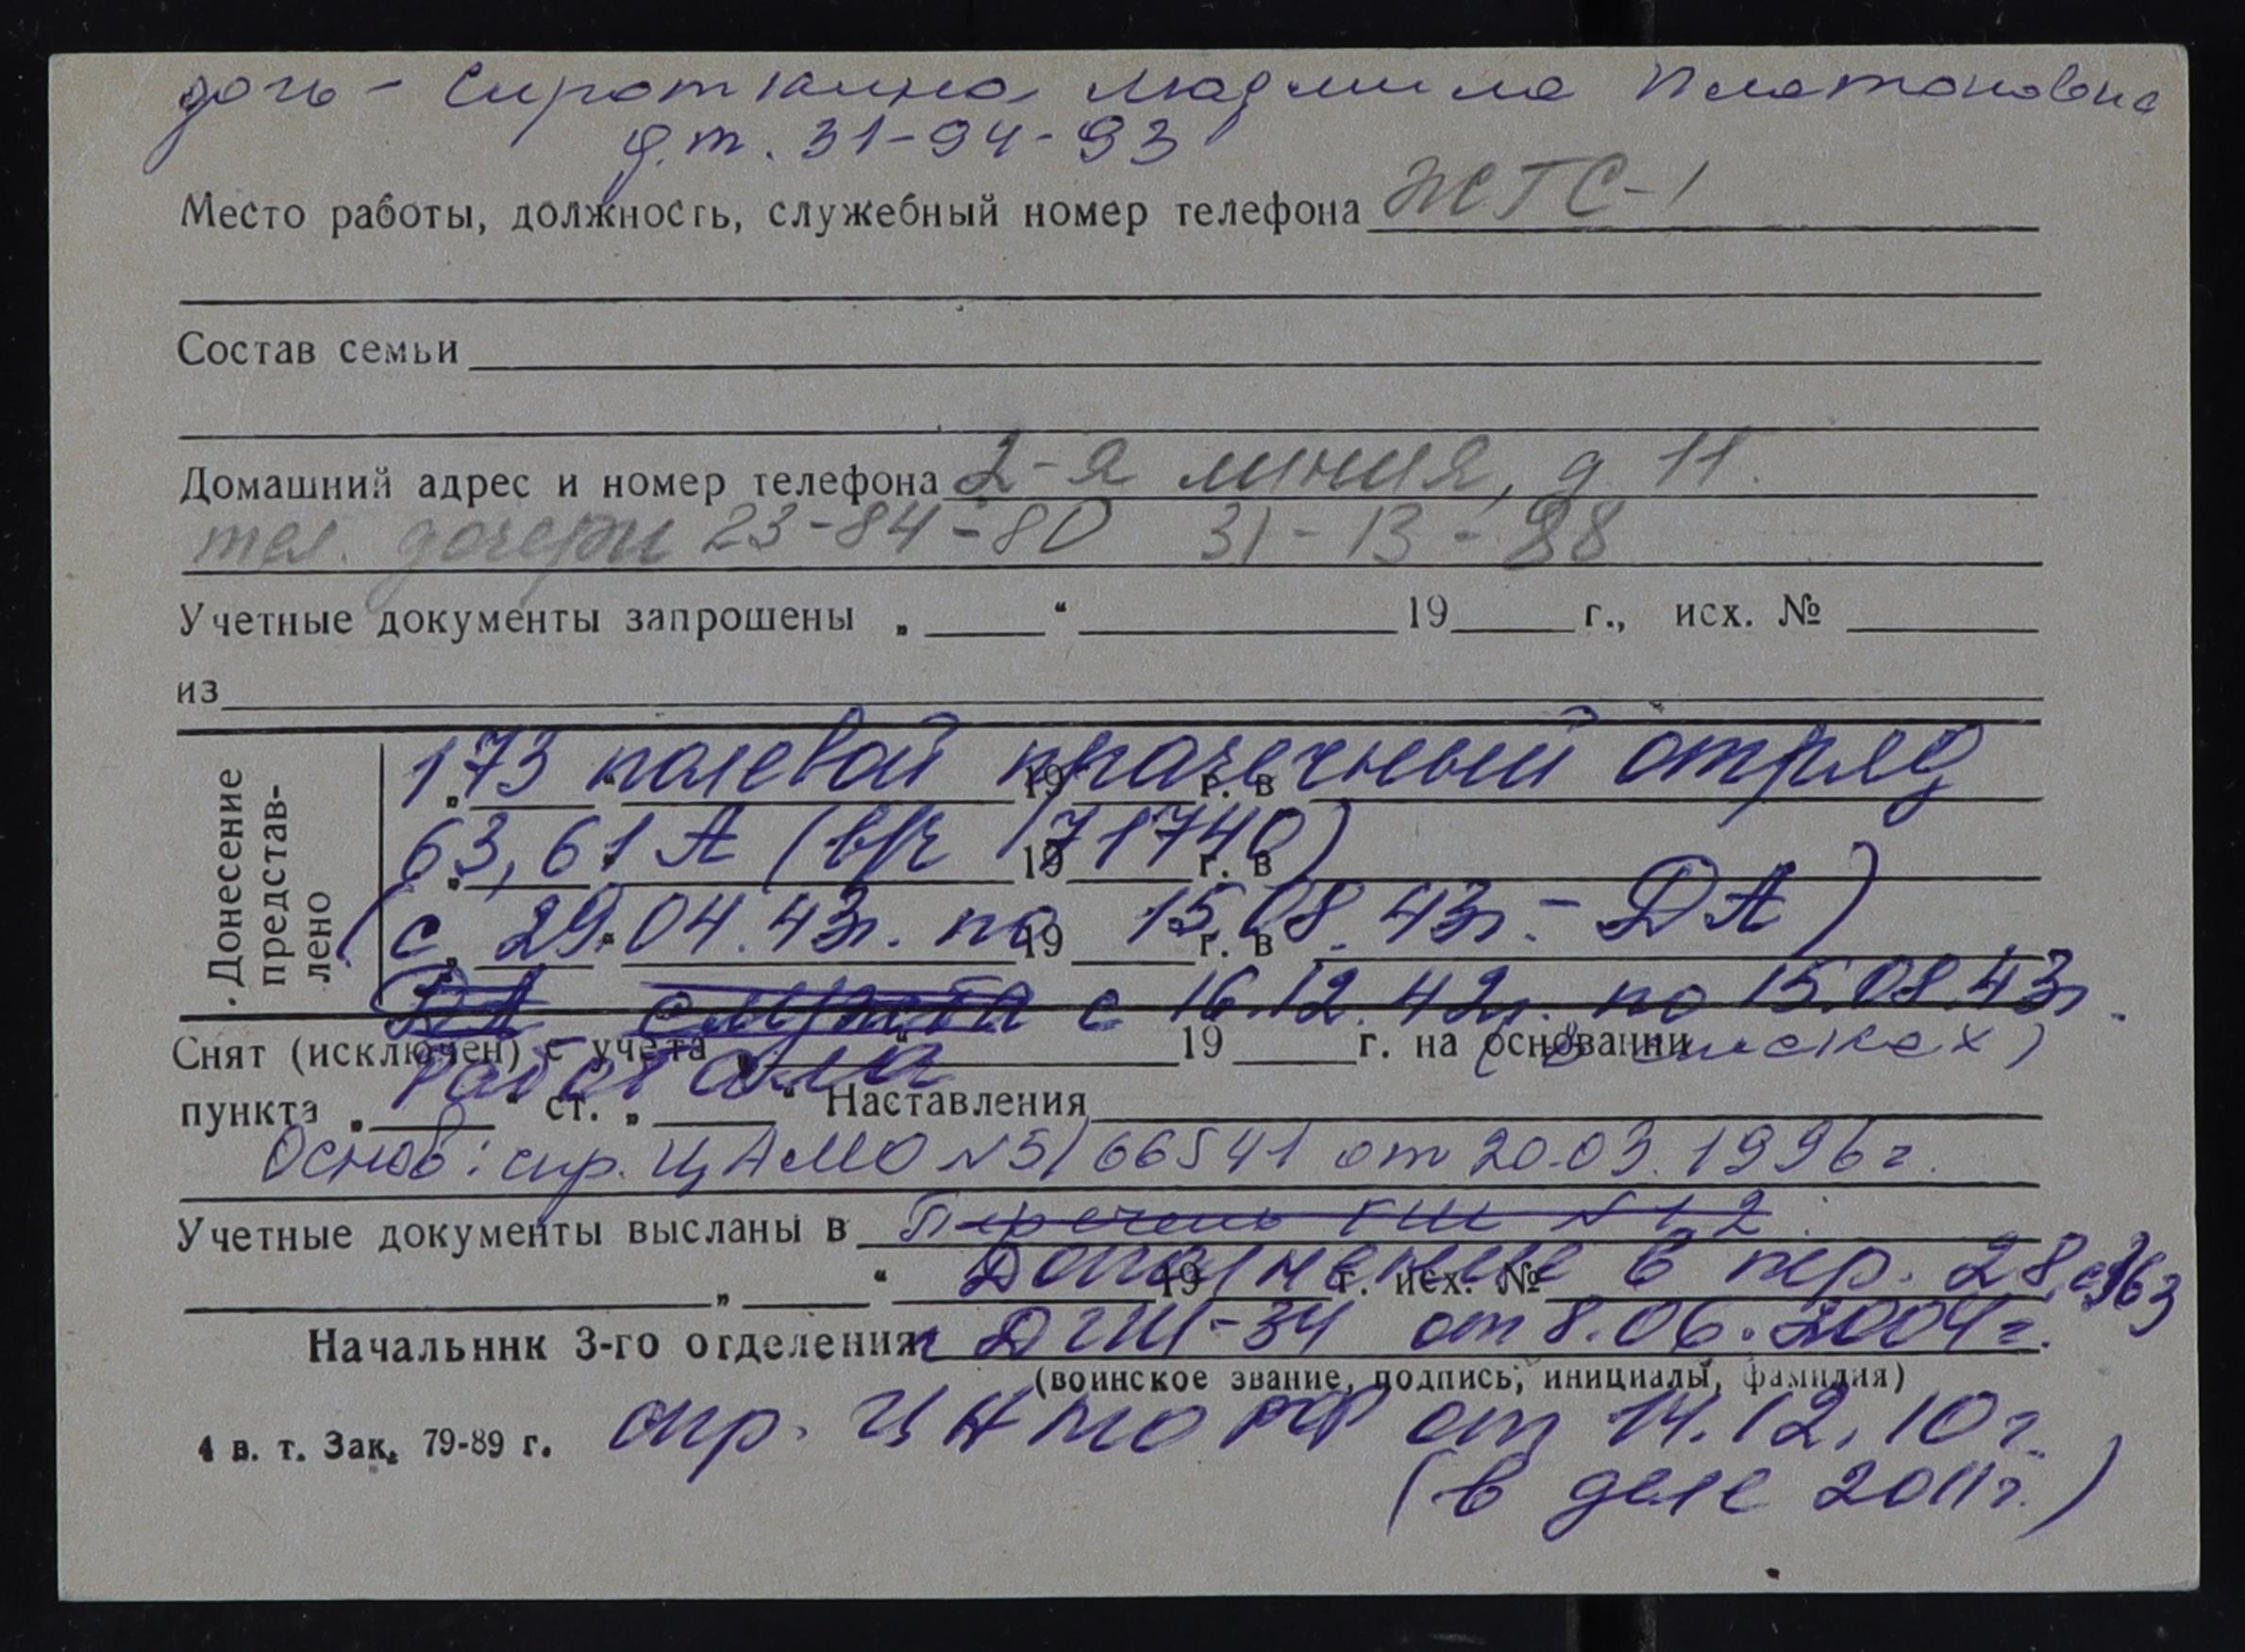 дочь - Сироткина Людмила Платоновна
д.т. 31-94-93
Место работы, должность, служебный номер телефона ЖГС-1
Состав семьи
Домашний адрес и номер телефона 2-я линия, д 11.
тел. дочери 23-84-80 31-13-88
Учетные документы запрошены „ “ 19 г., исх. №
из
Донесение представ-лено
173 полевой прачечный отряд
„ “ 19 г. в
63, 61 А (в/ч 71740)
„ “ 19 г. в
(с 29.04.43г. по 15.08.43г. - ДА)
„ “ 19 г. в
ДА с 16.12.42г. по 15.08.43г.
Снят (исключен) с учета „ “ 19 г. на основании
работала (в списках)
пункта „ “ ст. „ “ Наставления
Основ: спр. ЦАМО №5/66541 от 20.03.1996г.
Учетные документы высланы в Перечень ГШ №1,2
Дополнение в пер. 28,
„ “ 19 г. исх. №
Начальник 3-го отделения ДГШ-34 от 8.06.2004г.
(воинское звание, подпись, инициалы, фамилия)
4 в. т. Зак. 79-89 г. спр. ЦАМО РФ от 14.12.10г.
(в деле 2011г.)